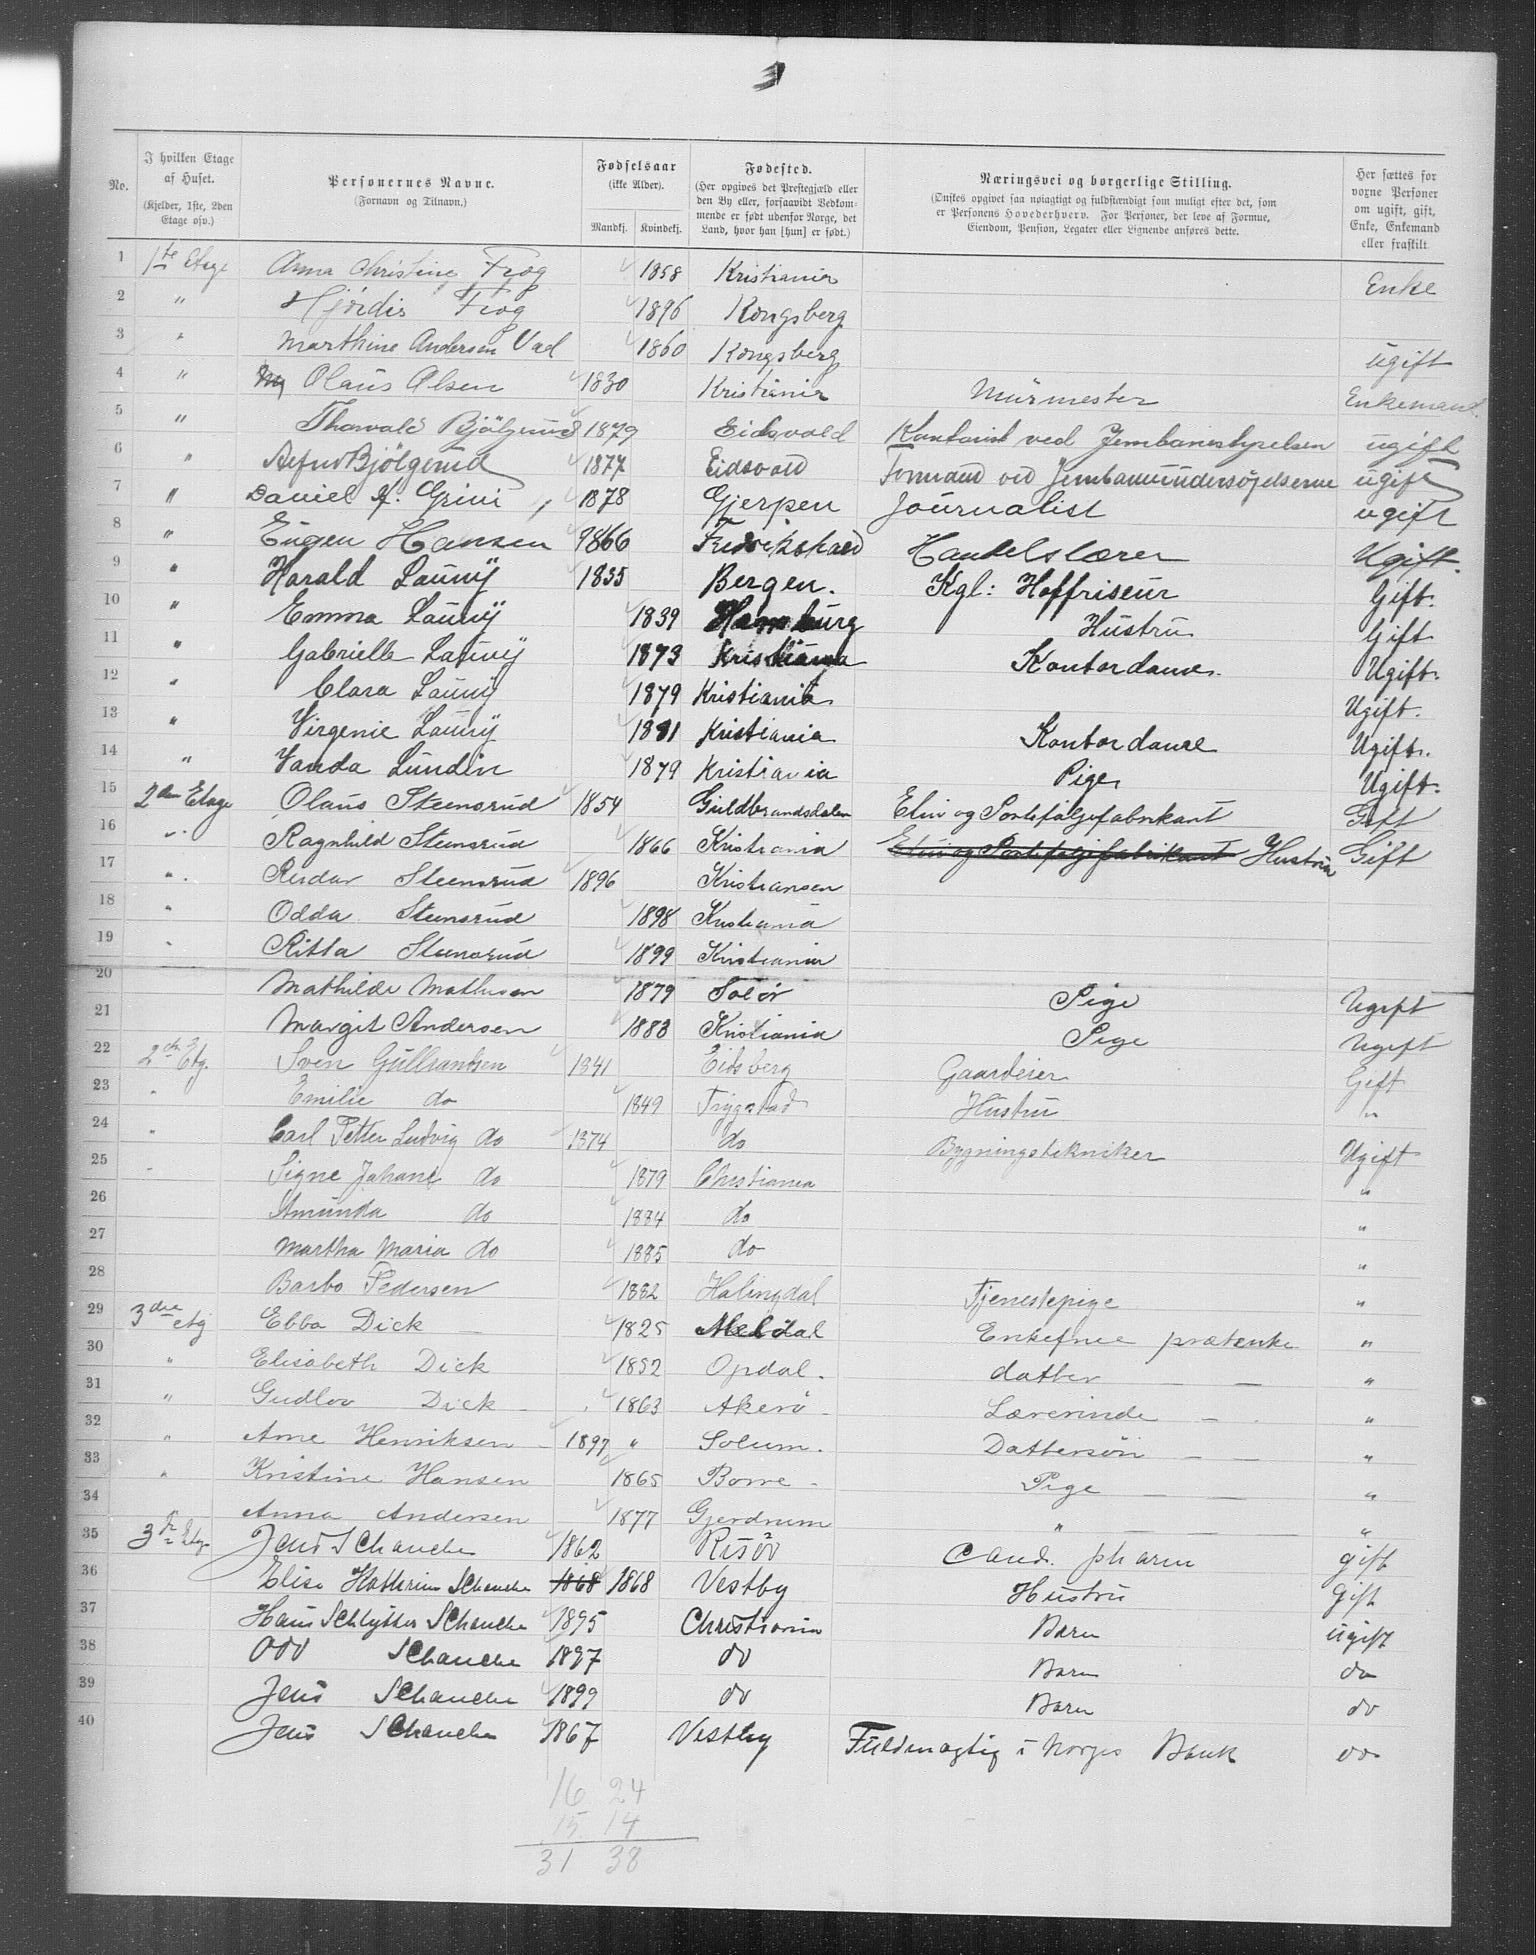 3
No.
I hvilken Etage af Huset. (Kjelder, 1ste, 2den Etage osv.)
Personernes Navne. (Fornavn og Tilnavn.)
Fødselsaar (ikke Alder). Mandkj. Kvindekj.
Fødested. (Her opgives det Prestegjæld eller den By eller, forsaavidt Vedkommende er født udenfor Norge, det Land, hvor han [hun] er født.)
Næringsvei og borgerlige Stilling. (Ønskes opgivet saa nøiagtigt og fuldstændigt som muligt efter det, som er Personens Hovederhverv. For Personer, der leve af Formue, Eiendom, Pension, Legater eller Lignende anføres dette.
Her sættes for voxne Personer om ugift, gift, Enke, Enkemand eller fraskilt.
1 1te Etage Anna Christine Frog 1858 Kristiania Enke
2 " Hjördis Frog 1896 Kongsberg
3 " Marthine Andersen Vad 1860 Kongsberg ugift
4 " Olaus Olsen 1830 Kristiania Murmester Enkemand.
5 " Thorvald Bjölgerud 1879 Eidsvold Kontorist ved Jernbanestyrelsen ugift
6 " Bjölgerud 1877 Eidsvold Formand ved Jernbaneundersøgelserne ugift
7 " Daniel Grini 1878 Gjerpen Journalist ugift
8 " Eugen Hansen 1866 Fredrikshald Handelslærer Ugift.
9 " Harald Launy 1835 Bergen. Kgl: Hoffriseur Gift.
10 " Emma Launy 1839 Hamburg Hustru Gift
11 " Gabrielle Launy 1873 Kristiania Kontordame. Ugift.
12 " Clara Launy 1879 Kristiania Ugift.
13 " Virgenie Launy 1881 Kristiania Kontordame Ugift.
14 " Vanda Lundin 1879 Kristiania Pige Ugift.
15 2den Etage Olaus Steensrud 1854 Guldbrandsdalen Etui og Porteføljefabrikant Gift
16 " Ragnhild Steensrud 1866 Kristiania Etui og Porteføljefabrikant Hustru Gift
17 " Reidar Steensrud 1896 Kristiansen
18 " Odda Steensrud 1898 Kristiania
19 " Ritta Steensrud 1899 Kristiania
20 Mathilde Mathisen 1879 Solør Pige Ugift
21 Margit Andersen 1883 Kristiania Pige Ugift
22 2den Etg. Sven Gullrandsen 1841 Eidsberg Gaardeier Gift
23 " Emilie do 1849 Trygstad Hustru "
24 " Carl Petter Ludvig do 1874 do Bygningstekniker Ugift
25 " Signe Johane do 1879 Christiania "
26 Amunda do 1884 do "
27 Martha Maria do 1885 do "
28 Barbo Pedersen 1882 Halingdal Tjenestepige "
29 3die etg Ebba Dick 1825 Meldal Enkefrue "
30 " Elisabeth Dick 1852 Opdal. datter "
31 " Gudlov Dick 1863 Akerö Lærerinde "
32 " Arne Henriksen 1897 " Solum. Dattersön "
33 " Kristine Hansen 1865 Borre Pige "
34 " Anna Andersen 1877 Gjerdrum " "
35 3die Etage Jens Schanche 1862 Risör Cand. pharm gift
36 Elise Kathrine Schanche 1868 1868 Vestby Hustru Gift
37 Hans Schlytter Schanche 1895 Christiania Barn ugift
38 Odd Schanche 1897 do Barn do
39 Jens Schanche 1899 do Barn do
40 Jens Schanche 1867 Vestby Fuldmægtig i Norges Bank do
16 24
15 14
31 38